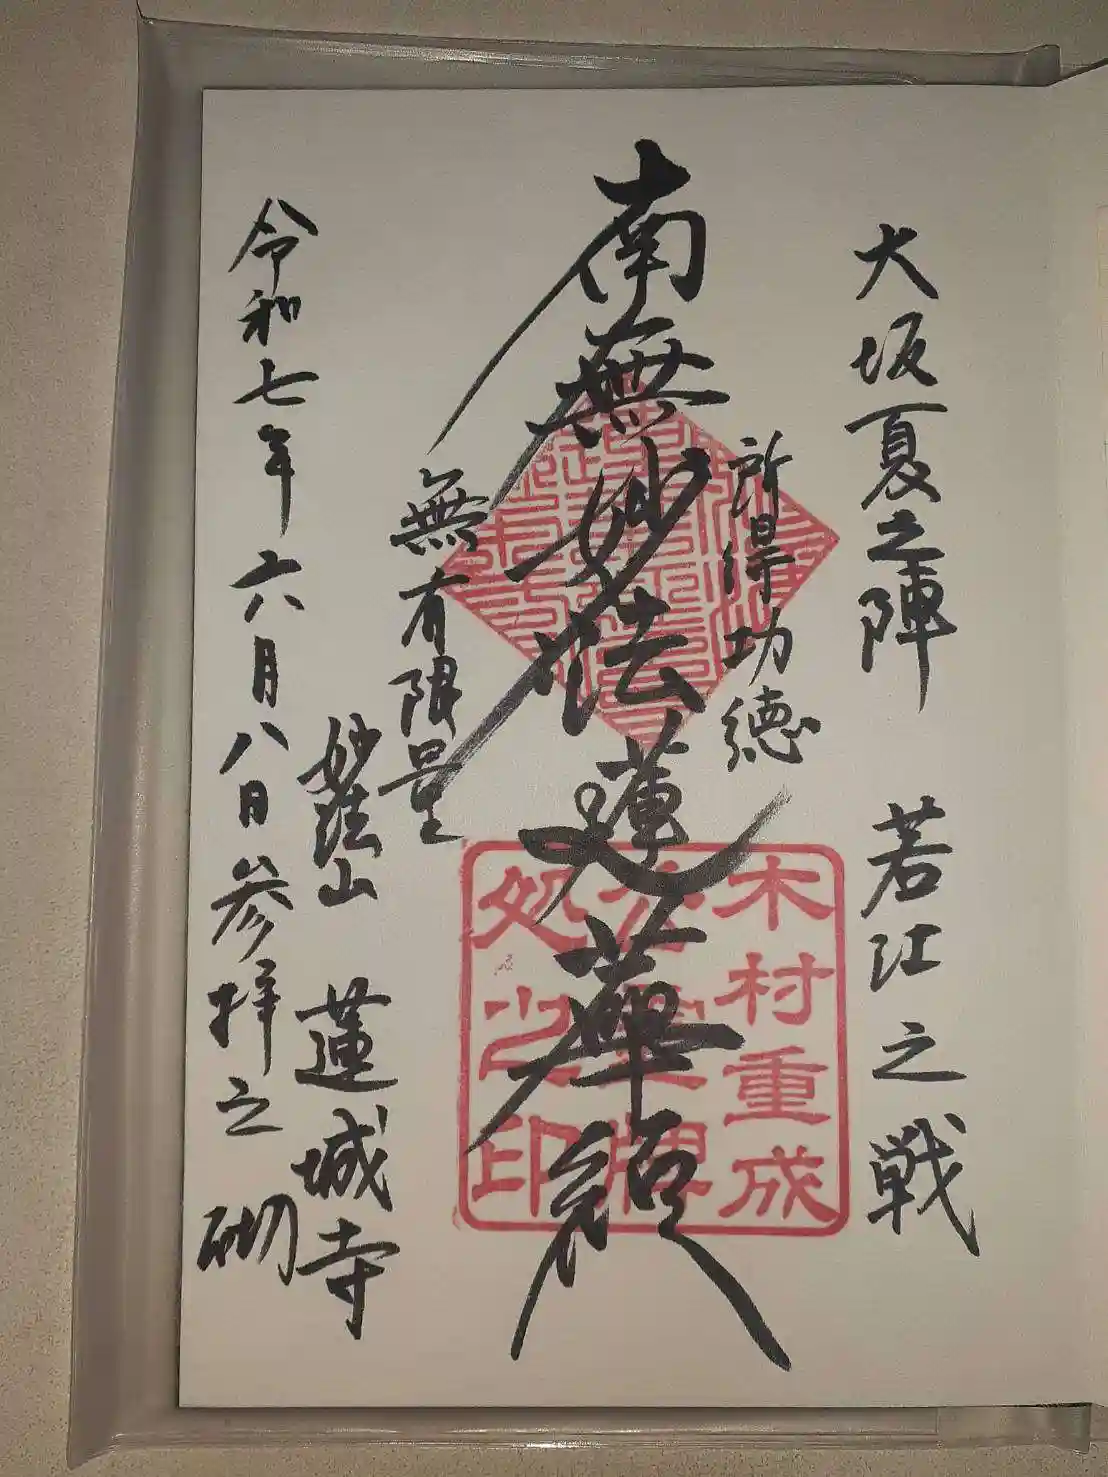 大坂夏之陣 若江之戦
所得功徳
南無妙法蓮華経
無有限量
妙法山 蓮城寺
令和七年六月八日参拝之砌
木村重成
霊牌
処之印